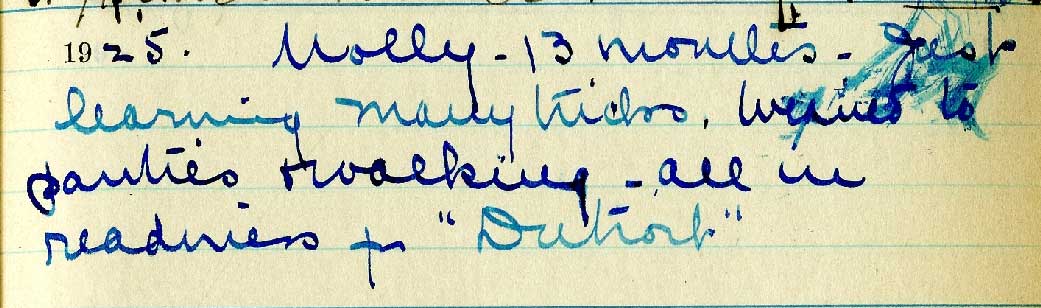 1925. Molly - 13 months - Just
learning many tricks, trained to
panties & walking - all in
readiness for "Detroit"